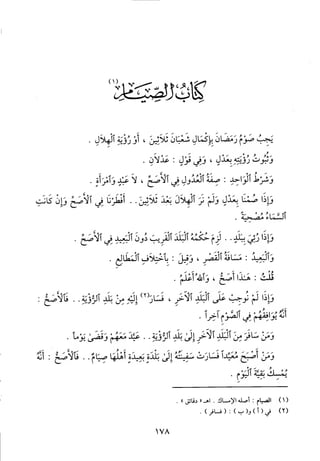 كتاب الصيام (١)
يجب صوم رمضان بإكمال شعبان ثلاثين ، أو رؤية الهلال .
وثبوت رؤيته بعدل ، وفي قول : عدلان .
وشرط الواحد : صفة العدول في الأصح ، لا عبد وامرأة .
وإذا صمنا بعدل ولم نر الهلال بعد ثلاثين .. أفطرنا في الأصح وإن كانت
السماء مصحية .
وإذا رئي ببلد .. لزم حكمه البلد القريب دون البعيد في الأصح .
والبعيد : مسافة القصر ، وقيل : باختلاف المطالع .
قلت : هذا أصح ، والله أعلم .
وإذا لم نوجب على البلد الآخر ، فسار (٢) إليه من بلد الرؤية .. فالأصح :
أنه يوافقهم في الصوم آخراً .
ومن سافر من البلد الآخر إلى بلد الرؤية .. عيد معهم وقضى يوماً .
ومن أصبح معيداً فسارت سفينته إلى بلدة بعيدة أهلها صيام .. فالأصح : أنه
يمسك بقية اليوم .
(١) الصيام : أصله الإمساك . اهـ « دقائق » .
(٢) في ( أ ) و( ب ) : ( فسافر ) .
١٧٨